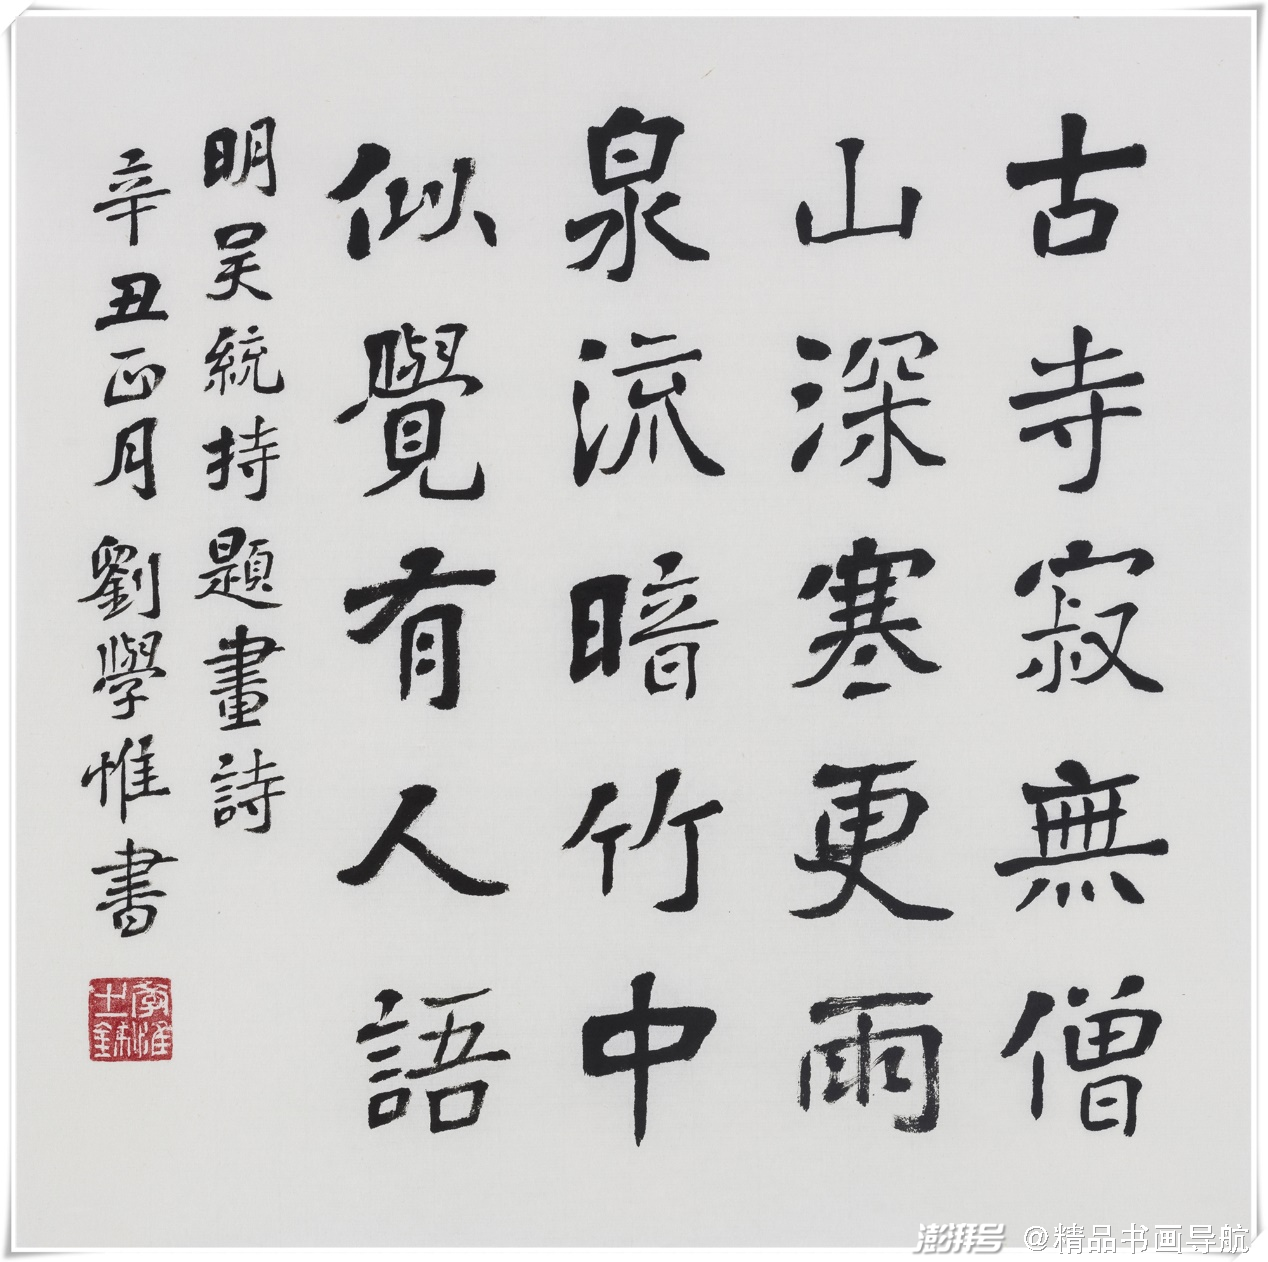 古寺寂無僧
山深寒更雨
泉流暗竹中
似覺有人語
明吴統持題畫詩
辛丑正月劉學惟書
澎湃号 @精品书画导航